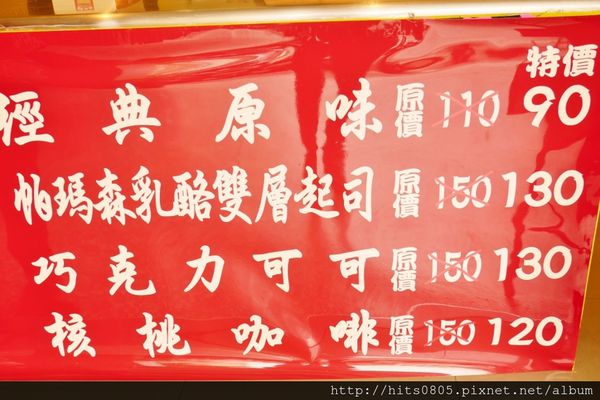 特價
經典原味 原價 110 90
帕瑪森乳酪雙層起司 原價 150 130
巧克力可可 原價 150 130
核桃咖啡 原價 150 120
http://hits0805.pixnet.net/album